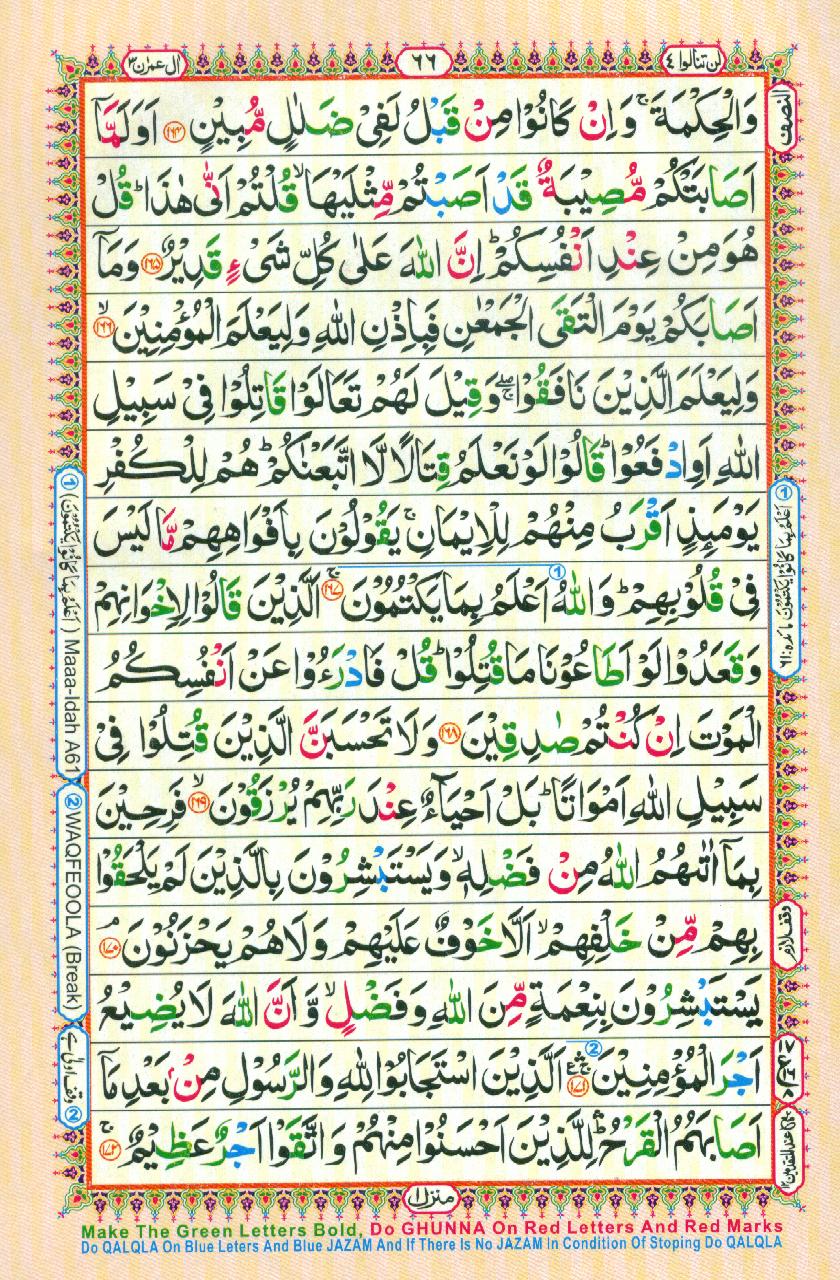 لن تنالوا ٤
٦٦
اٰل عمرٰن ٣
النصف
وَالْحِكْمَةَ ۚ وَاِنْ كَانُوْا مِنْ قَبْلُ لَفِيْ ضَلٰلٍ مُّبِيْنٍ ﴿۱۶۴﴾ اَوَلَمَّاۤ
اَصَابَتْكُمْ مُّصِيْبَةٌ قَدْ اَصَبْتُمْ مِّثْلَيْهَا ۙ قُلْتُمْ اَنّٰى هٰذَا ؕ قُلْ
هُوَ مِنْ عِنْدِ اَنْفُسِكُمْ ؕ اِنَّ اللّٰهَ عَلٰى كُلِّ شَيْءٍ قَدِيْرٌ ﴿۱۶۵﴾ وَمَاۤ
اَصَابَكُمْ يَوْمَ الْتَقَى الْجَمْعٰنِ فَبِاِذْنِ اللّٰهِ وَلِيَعْلَمَ الْمُؤْمِنِيْنَ ۙ ﴿۱۶۶﴾
وَلِيَعْلَمَ الَّذِيْنَ نَافَقُوْا ۖۚ وَقِيْلَ لَهُمْ تَعَالَوْا قَاتِلُوْا فِيْ سَبِيْلِ
اللّٰهِ اَوِ ادْفَعُوْا ؕ قَالُوْا لَوْ نَعْلَمُ قِتَالًا لَّا اتَّبَعْنٰكُمْ ؕ هُمْ لِلْكُفْرِ
يَوْمَئِذٍ اَقْرَبُ مِنْهُمْ لِلْاِيْمَانِ ۚ يَقُوْلُوْنَ بِاَفْوَاهِهِمْ مَّا لَيْسَ
فِيْ قُلُوْبِهِمْ ؕ وَاللّٰهُ اَعْلَمُ بِمَا يَكْتُمُوْنَ ۚ ﴿۱۶۷﴾ اَلَّذِيْنَ قَالُوْا لِاِخْوَانِهِمْ
وَقَعَدُوْا لَوْ اَطَاعُوْنَا مَا قُتِلُوْا ؕ قُلْ فَادْرَءُوْا عَنْ اَنْفُسِكُمُ
الْمَوْتَ اِنْ كُنْتُمْ صٰدِقِيْنَ ﴿۱۶۸﴾ وَلَا تَحْسَبَنَّ الَّذِيْنَ قُتِلُوْا فِيْ
سَبِيْلِ اللّٰهِ اَمْوَاتًا ؕ بَلْ اَحْيَآءٌ عِنْدَ رَبِّهِمْ يُرْزَقُوْنَ ۙ ﴿۱۶۹﴾ فَرِحِيْنَ
بِمَاۤ اٰتٰىهُمُ اللّٰهُ مِنْ فَضْلِهٖ ۙ وَيَسْتَبْشِرُوْنَ بِالَّذِيْنَ لَمْ يَلْحَقُوْا
بِهِمْ مِّنْ خَلْفِهِمْ ۙ اَلَّا خَوْفٌ عَلَيْهِمْ وَلَا هُمْ يَحْزَنُوْنَ ۘ ﴿۱۷۰﴾
يَسْتَبْشِرُوْنَ بِنِعْمَةٍ مِّنَ اللّٰهِ وَفَضْلٍ ۙ وَّاَنَّ اللّٰهَ لَا يُضِيْعُ
اَجْرَ الْمُؤْمِنِيْنَ ﴿۱۷۱﴾ اَلَّذِيْنَ اسْتَجَابُوْا لِلّٰهِ وَالرَّسُوْلِ مِنْۢ بَعْدِ مَاۤ
اَصَابَهُمُ الْقَرْحُ ؕ لِلَّذِيْنَ اَحْسَنُوْا مِنْهُمْ وَاتَّقَوْا اَجْرٌ عَظِيْمٌ ۚ ﴿۱۷۲﴾
① اَعْلَمُ بِمَا كَانُوْا يَكْتُمُوْنَ مائدہ : ٦١
وقف لازم
① (اَعْلَمُ بِمَا كَانُوْا يَكْتُمُوْنَ) Maaa-Idah A61
② WAQFEOOLA (Break)
وقف اولىٰ ہے ②
منزل ١
Make The Green Letters Bold, Do GHUNNA On Red Letters And Red Marks
Do QALQLA On Blue Leters And Blue JAZAM And If There Is No JAZAM In Condition Of Stoping Do QALQLA